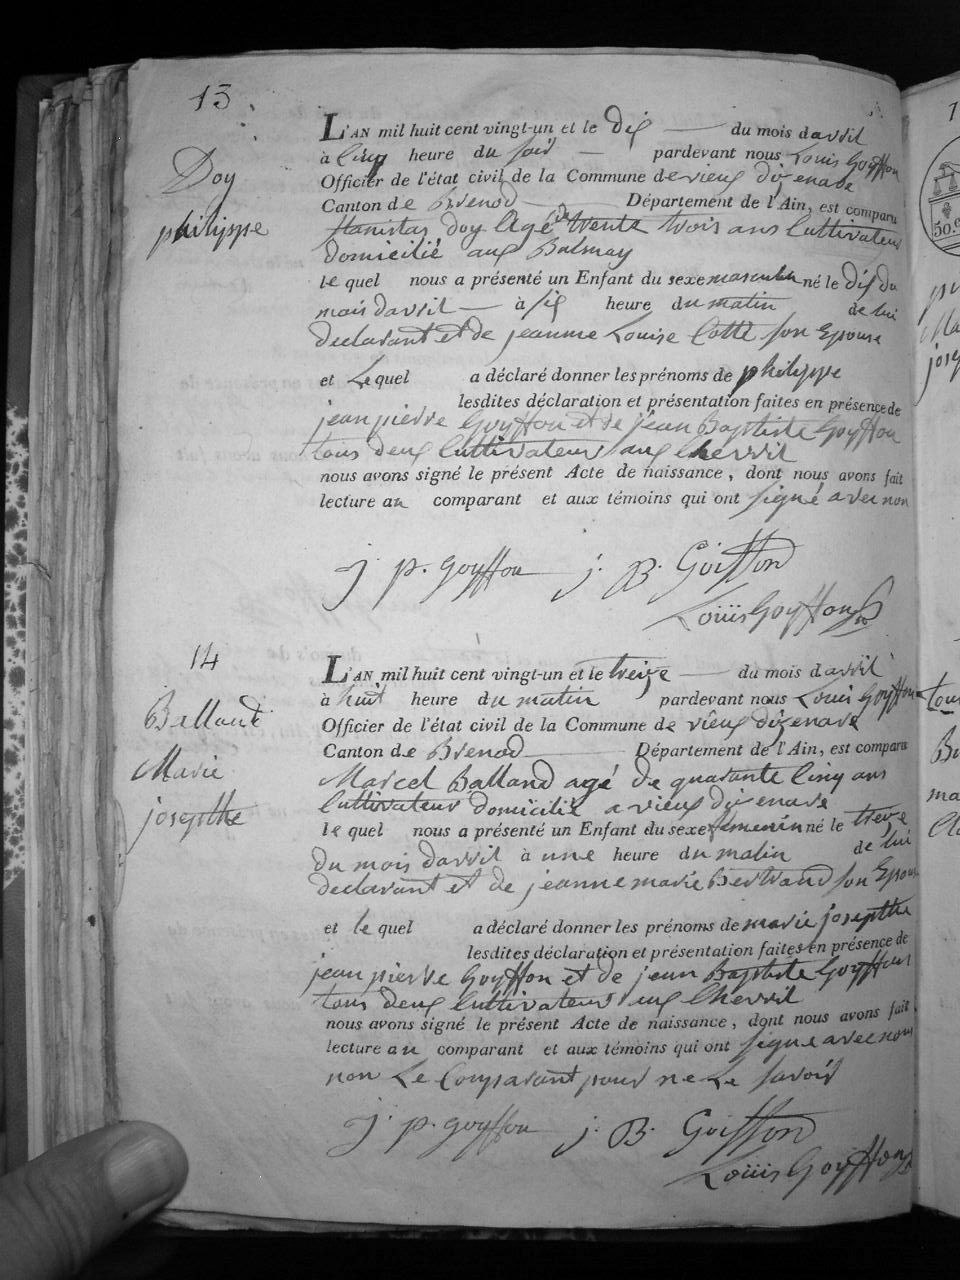 13
Doy
philippe
L'AN mil huit cent vingt-un et le dix du mois davril
à cinq heure du soir pardevant nous Louis Goyffon
Officier de l'état civil de la Commune de vieux dizenave
Canton de Brénod Département de l'Ain, est comparu
Stanislas doy Agé de trente trois ans Cultivateur
domicilié aux Balmay
le quel nous a présenté un Enfant du sexe masculin né le dix du
mois davril à six heure du matin de lui
declarant et de jeanne Louise Cotte son Epouse
et Le quel a déclaré donner les prénoms de philippe
lesdites déclaration et présentation faites en présence de
jean pierre Goyffon et de jean Baptiste Goyffon
tous deux Cultivateurs aux Cherril
nous avons signé le présent Acte de naissance, dont nous avons fait
lecture au comparant et aux témoins qui ont signé avec nou
j. p. goyffon j. B. Goiffon
Louis Goyffon
14
Balland
Marie
josepthe
L'AN mil huit cent vingt-un et le treize du mois davril
à huit heure du matin pardevant nous Louis Goyffon
Officier de l'état civil de la Commune de vieux dizenave
Canton de Brenod Département de l'Ain, est comparu
Marcel Balland agé de quarante Cinq ans
Cultivateur domicilié a vieux dizenave
le quel nous a présenté un Enfant du sexe femenin né le treze
du mois davril à une heure du matin de lui
declarant et de jeanne marie Bertrand son Epouse
et le quel a déclaré donner les prénoms de marie josepthe
lesdites déclaration et présentation faites en présence de
jean pierre Goyffon et de jean Baptiste Goyffon
tous deux Cultivateurs aux Cherril
nous avons signé le présent Acte de naissance, dont nous avons fait
lecture au comparant et aux témoins qui ont signé avec nous
non Le Comparant pour ne Le savoir
j. p. goyffon j. B. Goiffon
Louis Goyffon